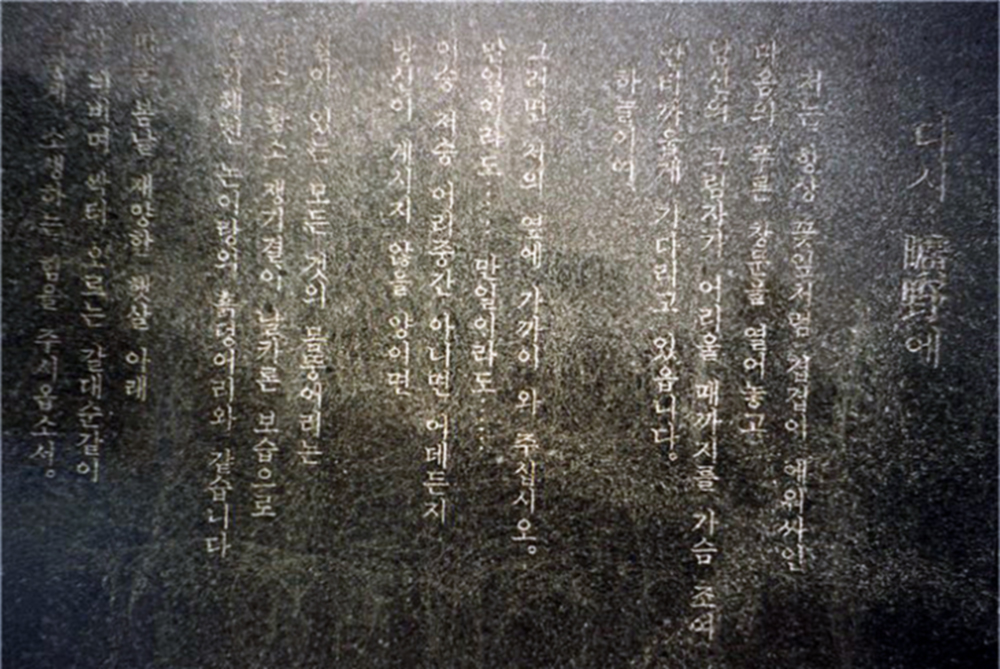 다시 曠野에
저는 항상 꽃잎처럼 겹겹이 에워싸인
마음의 푸른 창문을 열어놓고
당신의 그림자가 어리울 때까지를 가슴 조여
안타까웁게 기다리고 있읍니다。
하늘이여
그러면 저의 옆에 가까이 와 주십시오。
만일이라도…… 만일이라도……
이승 저승 어리중간 아니면 어데든지
당신이 계시지 않을 양이면
살아 있는 모든 것의 몸뚱어리는
암소 황소 쟁기결이 날카론 보습으로
갈아헤친 논이랑의 흙덩어리와 같습니다
따순 봄날 재양한 햇살 아래
눈비비며 싹터 오르는 갈대순같이
그렇게 소생하는 힘을 주시옵소서。